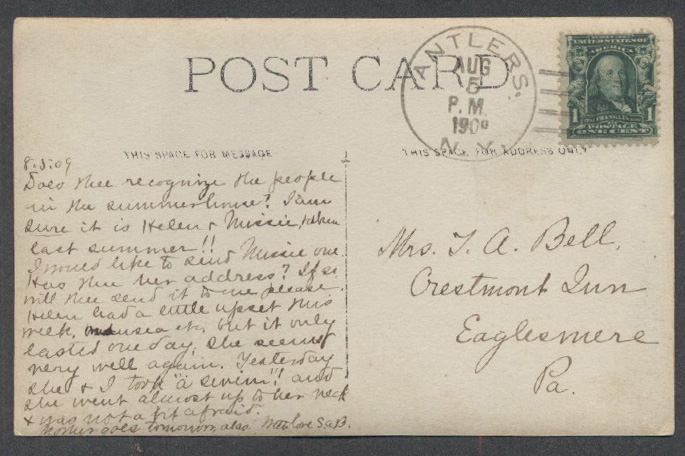 POST CARD
ANTLERS.
AUG
5
P.M.
1909
N.Y.
UNITED STATES OF
AMERICA
1 1
POSTAGE
ONE CENT
THIS SPACE FOR MESSAGE
THIS SPACE FOR ADDRESS ONLY
8.5.09
Does thee recognize the people
in the summerhouse? I am
sure it is Helen & Missie, taken
last summer!!
I would like to send Missie one.
Has thee her address? If so
will thee send it to me please.
Helen had a little upset this
week, nausea etc, but it only
lasted one day, she seems
very well again. Yesterday
she & I took "a swim"! and
she went almost up to her neck
& was not a bit afraid.
Mother goes tomorrow, also With love S.a.B.
Mrs. T. A. Bell,
Crestmont Inn
Eaglesmere
Pa.